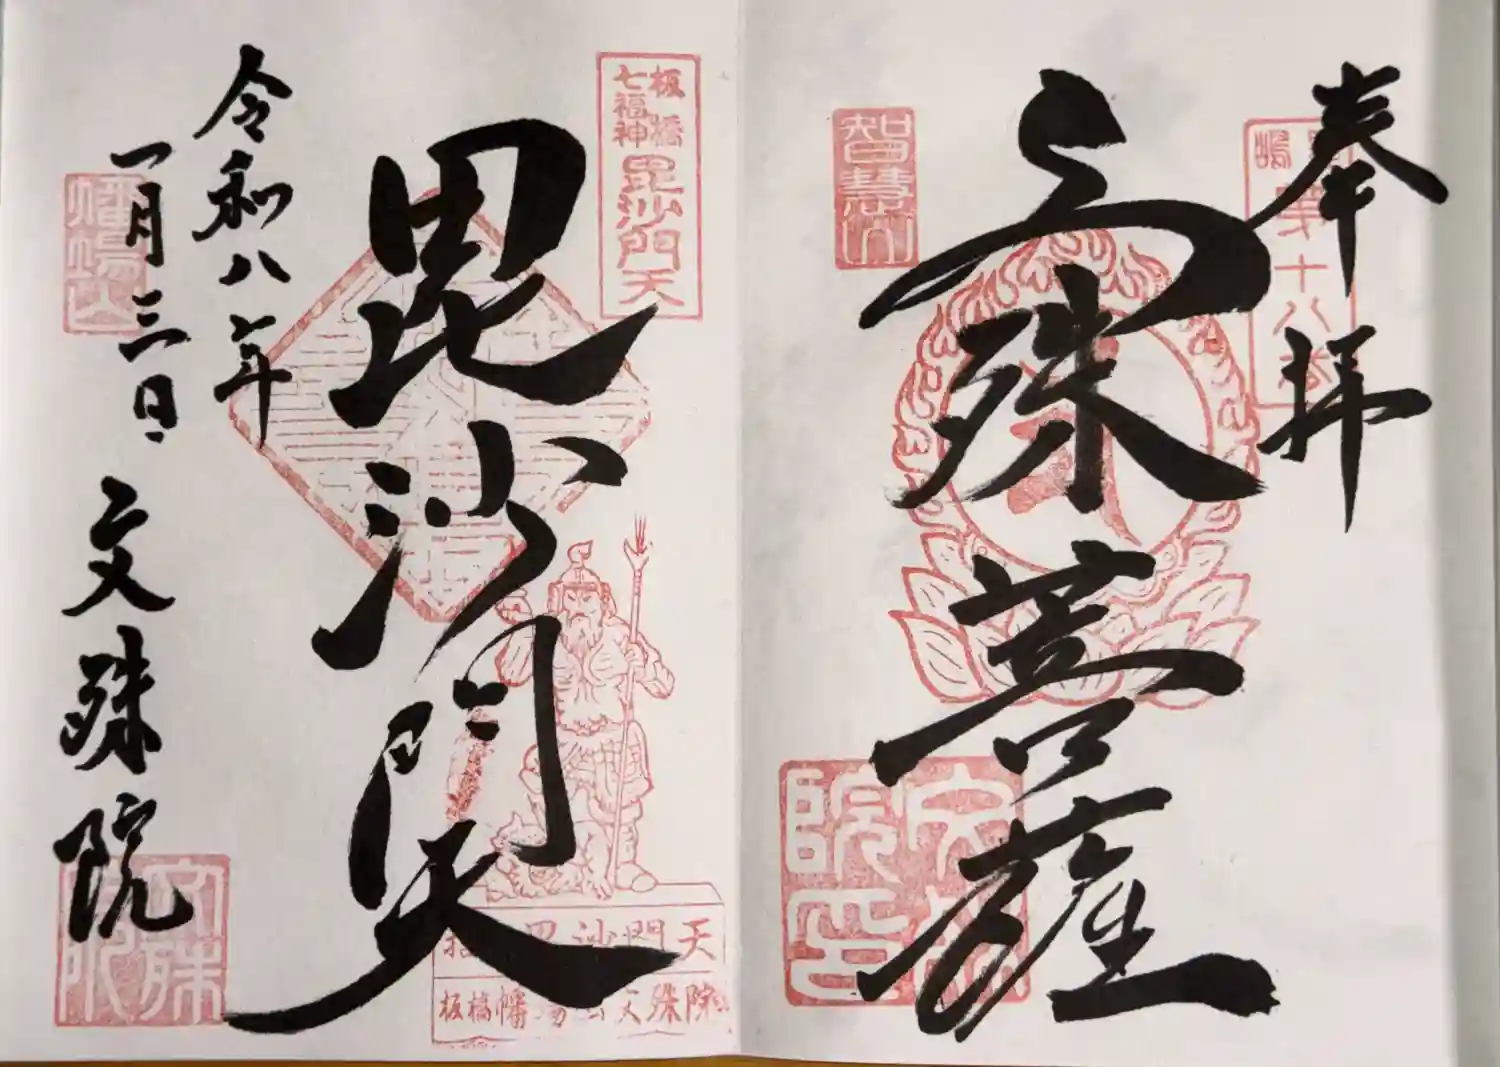 奉拝
文殊菩薩
智慧門
第十八番
文殊院印
板橋
七福神
毘沙門天
毘沙門天
令和八年
一月三日
文殊院
幡場山
毘沙門天
板橋幡場山文殊院
文殊院